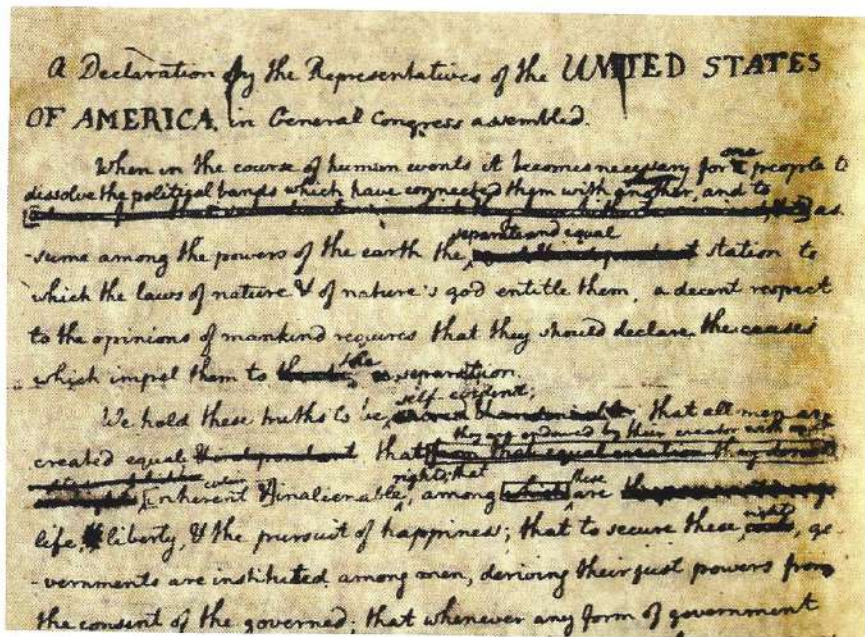 A Declaration by the Representatives of the UNITED STATES
OF AMERICA, in General Congress assembled.
When in the course of human events it becomes necessary for one people to
dissolve the political bands which have connected them with another, and to
as
-sume among the powers of the earth the separate and equal station to
which the laws of nature & of nature's god entitle them, a decent respect
to the opinions of mankind requires that they should declare the causes
which impel them to the separation.
We hold these truths to be self-evident; that all men are
created equal & independent that they are endowed by their creator with
from that equal creation they
inherent & inalienable rights; that among which these are
life, & liberty, & the pursuit of happiness; that to secure these rights, go
-vernments are instituted among men, deriving their just powers from
the consent of the governed; that whenever any form of government